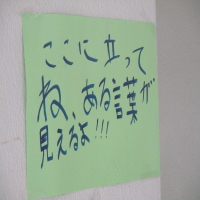 ここに立って
ね、ある言葉が
見えるよ!!!